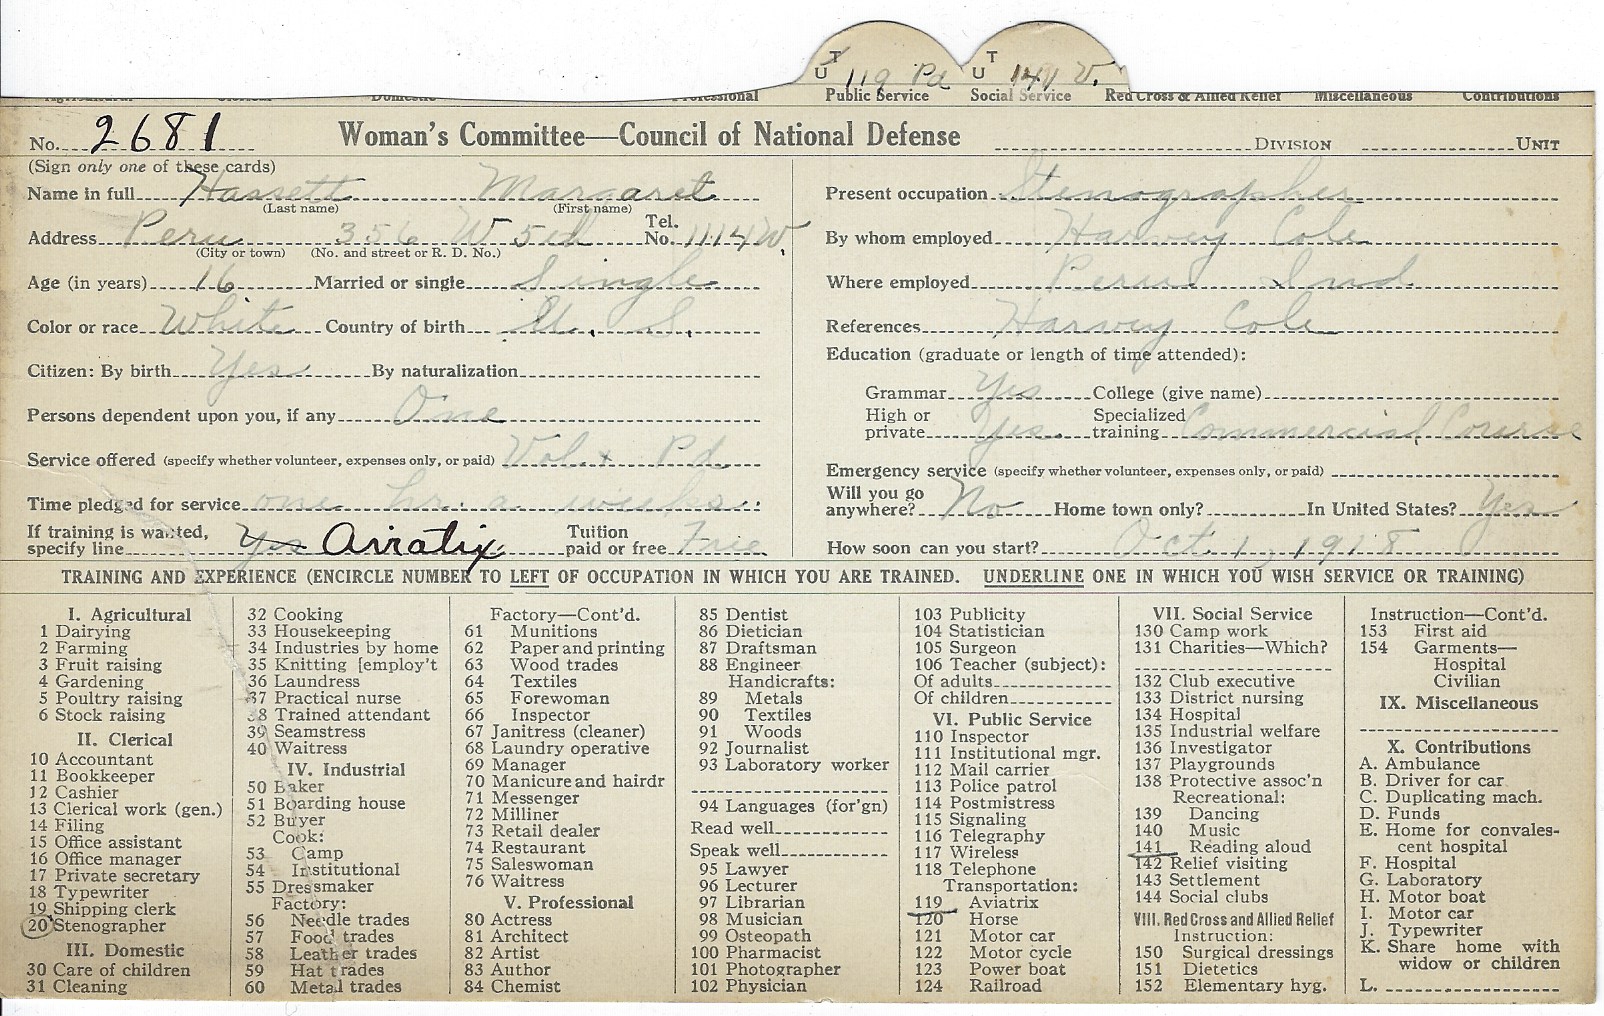 T U 119 Pd T U 141 V.
Professional Public Service Social Service Red Cross & Allied Relief Miscellaneous Contributions
No. 2681 Woman's Committee—Council of National Defense DIVISION UNIT
(Sign only one of these cards)
Name in full Hassett Margaret
(Last name) (First name)
Address Peru 356 W 5th Tel. No. 1114W.
(City or town) (No. and street or R. D. No.)
Age (in years) 16 Married or single Single
Color or race White Country of birth U. S.
Citizen: By birth Yes By naturalization
Persons dependent upon you, if any One
Service offered (specify whether volunteer, expenses only, or paid) Vol. + Pd
Time pledged for service one hr. a weeks
If training is wanted, specify line Yes Aviatix Tuition paid or free Free
Present occupation Stenographer
By whom employed Harvey Cole
Where employed Peru Ind
References Harvey Cole
Education (graduate or length of time attended):
Grammar Yes College (give name)
High or private Yes. Specialized training Commercial Course
Emergency service (specify whether volunteer, expenses only, or paid)
Will you go anywhere? No Home town only? In United States? Yes
How soon can you start? Oct. 1, 1918
TRAINING AND EXPERIENCE (ENCIRCLE NUMBER TO LEFT OF OCCUPATION IN WHICH YOU ARE TRAINED. UNDERLINE ONE IN WHICH YOU WISH SERVICE OR TRAINING)
I. Agricultural
1 Dairying
2 Farming
3 Fruit raising
4 Gardening
5 Poultry raising
6 Stock raising
II. Clerical
10 Accountant
11 Bookkeeper
12 Cashier
13 Clerical work (gen.)
14 Filing
15 Office assistant
16 Office manager
17 Private secretary
18 Typewriter
19 Shipping clerk
20 Stenographer
III. Domestic
30 Care of children
31 Cleaning
32 Cooking
33 Housekeeping
34 Industries by home
35 Knitting [employ't
36 Laundress
37 Practical nurse
38 Trained attendant
39 Seamstress
40 Waitress
IV. Industrial
50 Baker
51 Boarding house
52 Buyer
Cook:
53 Camp
54 Institutional
55 Dressmaker
Factory:
56 Needle trades
57 Food trades
58 Leather trades
59 Hat trades
60 Metal trades
Factory—Cont'd.
61 Munitions
62 Paper and printing
63 Wood trades
64 Textiles
65 Forewoman
66 Inspector
67 Janitress (cleaner)
68 Laundry operative
69 Manager
70 Manicure and hairdr
71 Messenger
72 Milliner
73 Retail dealer
74 Restaurant
75 Saleswoman
76 Waitress
V. Professional
80 Actress
81 Architect
82 Artist
83 Author
84 Chemist
85 Dentist
86 Dietician
87 Draftsman
88 Engineer
Handicrafts:
89 Metals
90 Textiles
91 Woods
92 Journalist
93 Laboratory worker
94 Languages (for'gn)
Read well
Speak well
95 Lawyer
96 Lecturer
97 Librarian
98 Musician
99 Osteopath
100 Pharmacist
101 Photographer
102 Physician
103 Publicity
104 Statistician
105 Surgeon
106 Teacher (subject):
Of adults
Of children
VI. Public Service
110 Inspector
111 Institutional mgr.
112 Mail carrier
113 Police patrol
114 Postmistress
115 Signaling
116 Telegraphy
117 Wireless
118 Telephone
Transportation:
119 Aviatrix
120 Horse
121 Motor car
122 Motor cycle
123 Power boat
124 Railroad
VII. Social Service
130 Camp work
131 Charities—Which?
132 Club executive
133 District nursing
134 Hospital
135 Industrial welfare
136 Investigator
137 Playgrounds
138 Protective assoc'n
Recreational:
139 Dancing
140 Music
141 Reading aloud
142 Relief visiting
143 Settlement
144 Social clubs
VIII. Red Cross and Allied Relief
Instruction:
150 Surgical dressings
151 Dietetics
152 Elementary hyg.
Instruction—Cont'd.
153 First aid
154 Garments—
Hospital
Civilian
IX. Miscellaneous
X. Contributions
A. Ambulance
B. Driver for car
C. Duplicating mach.
D. Funds
E. Home for convales-
cent hospital
F. Hospital
G. Laboratory
H. Motor boat
I. Motor car
J. Typewriter
K. Share home with
widow or children
L.